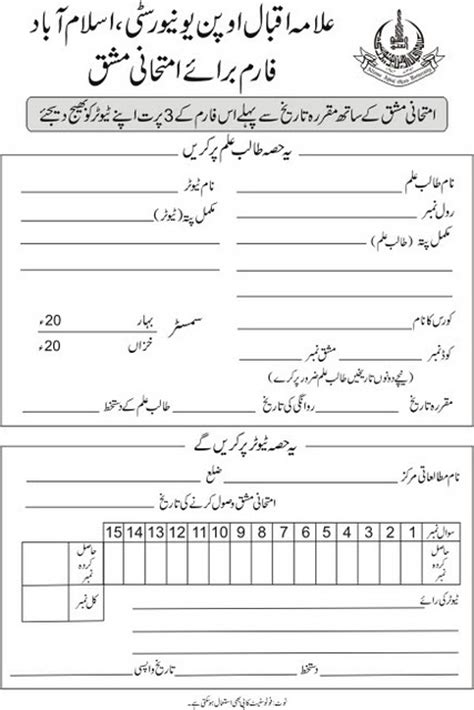 علامہ اقبال اوپن یونیورسٹی، اسلام آباد
فارم برائے امتحانی مشق
Allama Iqbal Open University
امتحانی مشق کے ساتھ مقررہ تاریخ سے پہلے اس فارم کے 3 پرت اپنے ٹیوٹر کو بھیج دیجئے
یہ حصہ طالب علم پر کریں
نام طالب علم نام ٹیوٹر
رول نمبر مکمل پتہ (ٹیوٹر)
مکمل پتہ (طالب علم)
کورس کا نام سمسٹر بہار 20ء
کوڈ نمبر مشق نمبر خزاں 20ء
(نیچے دونوں تاریخیں طالب علم ضرور پر کرے)
مقررہ تاریخ روانگی کی تاریخ طالب علم کے دستخط
یہ حصہ ٹیوٹر پر کریں گے
نام مطالعاتی مرکز ضلع
امتحانی مشق وصول کرنے کی تاریخ
سوال نمبر 1 2 3 4 5 6 7 8 9 10 11 12 13 14 15
حاصل کردہ نمبر حاصل کردہ نمبر
ٹیوٹر کی رائے کل نمبر
دستخط تاریخ واپسی
نوٹ: فوٹوسٹیٹ کاپی بھی استعمال ہو سکتی ہے۔